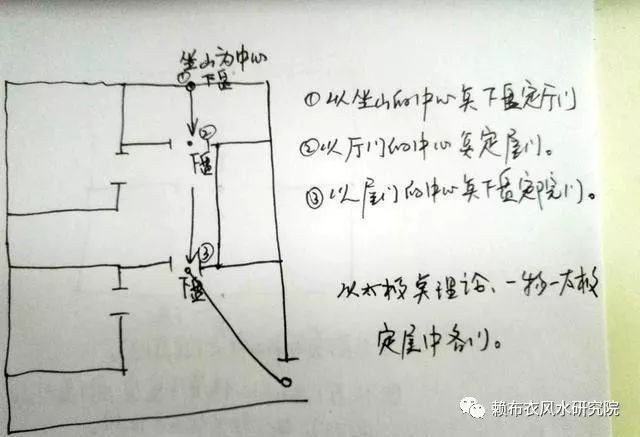 坐山为中心
① 下盘
②
下盘
③
下盘
①以坐山的中心点下盘定厅门
②以厅门的中心点定屋门。
③以屋门的中心点下盘定院门。
以太极点理论、一物一太极
定屋中各门。
赖布衣风水研究院